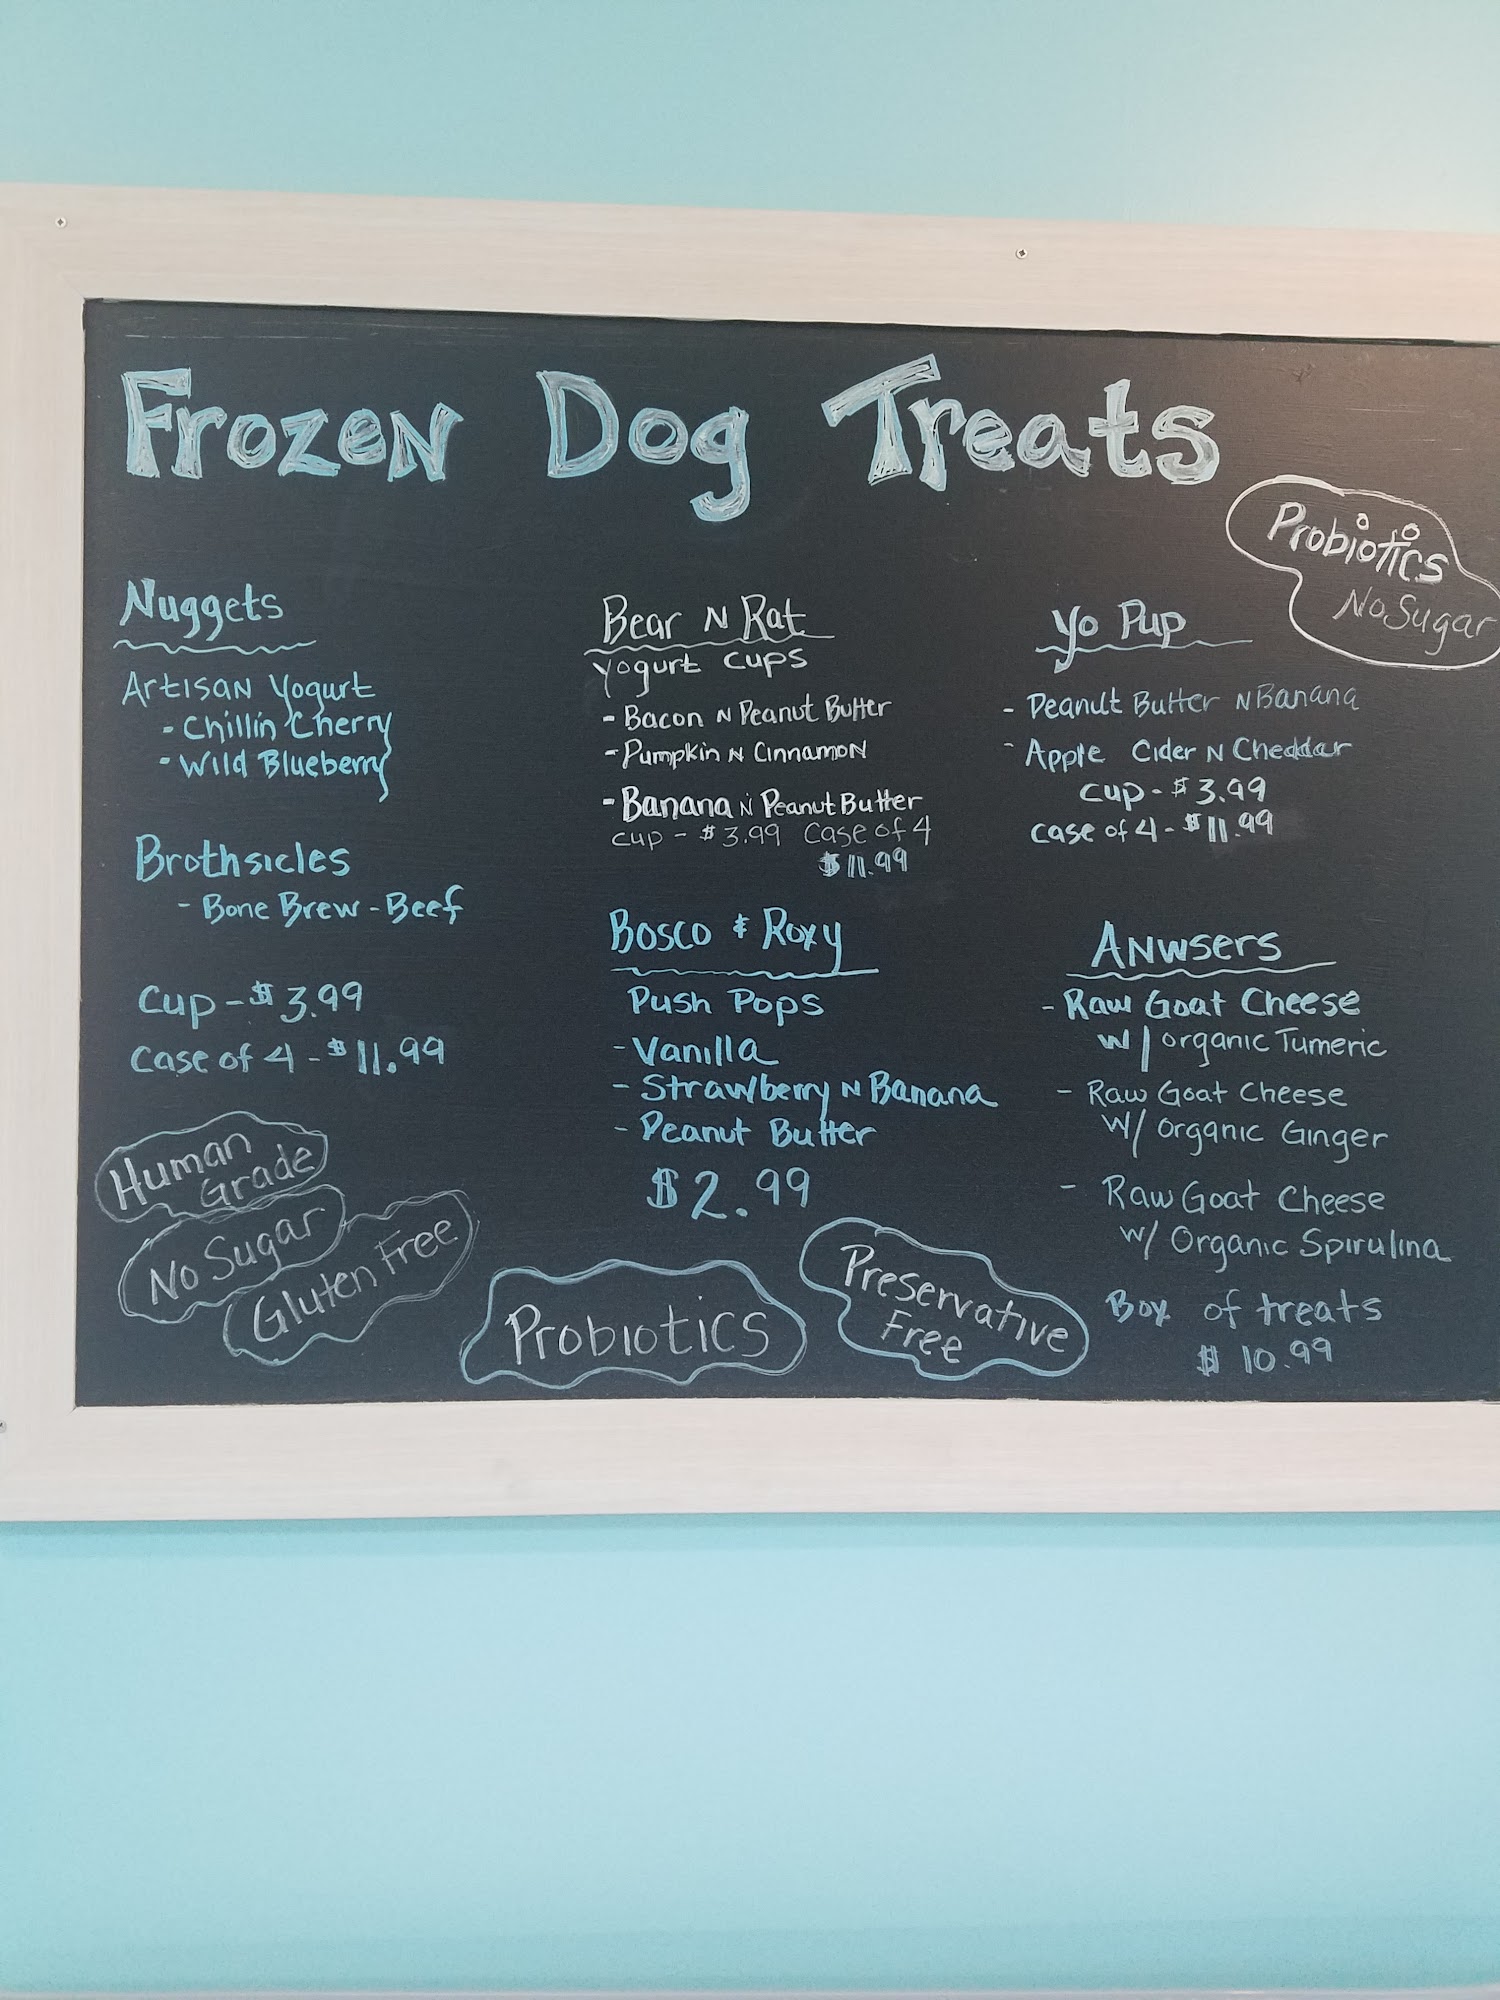 Frozen Dog Treats
Probiotics
No Sugar
Nuggets
Artisan Yogurt
- Chillin Cherry
- Wild Blueberry
Brothsicles
- Bone Brew - Beef
Cup - $3.99
Case of 4 - $11.99
Human
Grade
No Sugar
Gluten Free
Bear N Rat
Yogurt Cups
- Bacon N Peanut Butter
- Pumpkin N Cinnamon
- Banana N Peanut Butter
Cup - $3.99 Case of 4
$11.99
Bosco & Roxy
Push Pops
- Vanilla
- Strawberry N Banana
- Peanut Butter
$2.99
Probiotics
Preservative
Free
Yo Pup
- Peanut Butter N Banana
- Apple Cider N Cheddar
Cup - $3.99
Case of 4 - $11.99
Anwsers
- Raw Goat Cheese
w/ organic Tumeric
- Raw Goat Cheese
w/ organic Ginger
- Raw Goat Cheese
w/ Organic Spirulina
Box of treats
$10.99